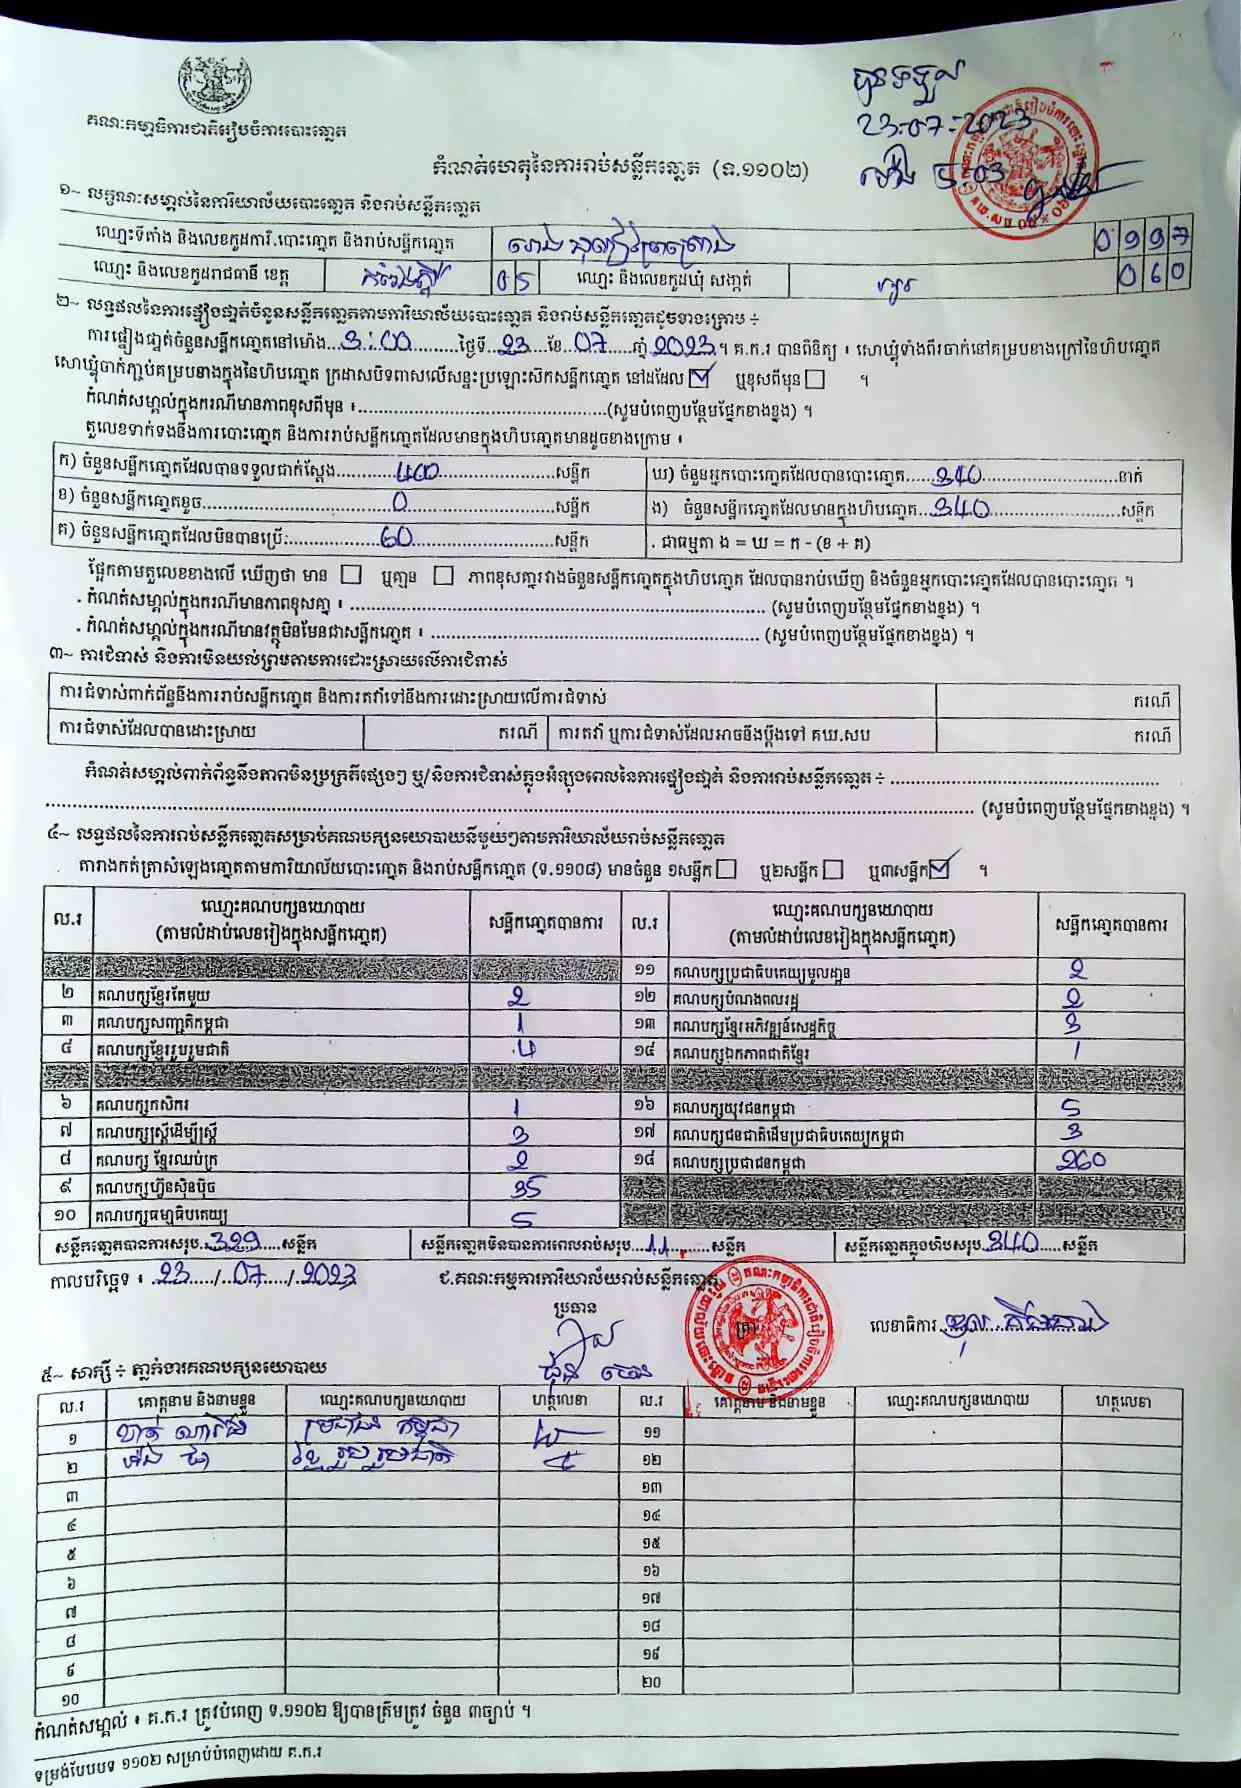 គណៈកម្មាធិការជាតិរៀបចំការបោះឆ្នោត
23-07-2023
ម៉ោង
កំណត់ហេតុនៃការរាប់សន្លឹកឆ្នោត (ទ.១១០២)
១~ លក្ខណៈសម្គាល់នៃការិយាល័យបោះឆ្នោត និងរាប់សន្លឹកឆ្នោត
ឈ្មោះទីតាំង និងលេខកូដការិ.បោះឆ្នោត និងរាប់សន្លឹកឆ្នោត 0997
ឈ្មោះ និងលេខកូដរាជធានី ខេត្ត 05 ឈ្មោះ និងលេខកូដឃុំ សង្កាត់ 060
២~ លទ្ធផលនៃការផ្ទៀងផ្ទាត់ចំនួនសន្លឹកឆ្នោតតាមការិយាល័យបោះឆ្នោត និងរាប់សន្លឹកឆ្នោតដូចខាងក្រោម ÷
ការផ្ទៀងផ្ទាត់ចំនួនសន្លឹកឆ្នោតនៅម៉ោង...3:00...ថ្ងៃទី...23...ខែ...07...ឆ្នាំ 2023។ គ.ក.រ បានពិនិត្យ ៖ សោឃ្លុំទាំងពីរចាក់នៅគម្របខាងក្រៅនៃហិបឆ្នោត
សោឃ្លុំចាក់ភ្ជាប់គម្របខាងក្នុងនៃហិបឆ្នោត ក្រដាសបិទពាសលើសន្ទះប្រឡោះស៊កសន្លឹកឆ្នោត នៅដដែល ☑ ឬខុសពីមុន ☐ ។
កំណត់សម្គាល់ក្នុងករណីមានភាពខុសពីមុន ៖..........(សូមបំពេញបន្ថែមផ្នែកខាងខ្នង) ។
តួលេខទាក់ទងនឹងការបោះឆ្នោត និងការរាប់សន្លឹកឆ្នោតដែលមានក្នុងហិបឆ្នោតមានដូចខាងក្រោម ៖
ក) ចំនួនសន្លឹកឆ្នោតដែលបានទទួលជាក់ស្ដែង...400...សន្លឹក ឃ) ចំនួនអ្នកបោះឆ្នោតដែលបានបោះឆ្នោត...340...នាក់
ខ) ចំនួនសន្លឹកឆ្នោតខូច...0...សន្លឹក ង) ចំនួនសន្លឹកឆ្នោតដែលមានក្នុងហិបឆ្នោត...340...សន្លឹក
គ) ចំនួនសន្លឹកឆ្នោតដែលមិនបានប្រើ:...60...សន្លឹក . ជាធម្មតា ង = ឃ = ក - (ខ + គ)
ផ្អែកតាមតួលេខខាងលើ ឃើញថា មាន ☐ ឬគ្មាន ☐ ភាពខុសគ្នារវាងចំនួនសន្លឹកឆ្នោតក្នុងហិបឆ្នោត ដែលបានរាប់ឃើញ និងចំនួនអ្នកបោះឆ្នោតដែលបានបោះឆ្នោត ។
. កំណត់សម្គាល់ក្នុងករណីមានភាពខុសគ្នា ៖ .......... (សូមបំពេញបន្ថែមផ្នែកខាងខ្នង) ។
. កំណត់សម្គាល់ក្នុងករណីមានវត្ថុមិនមែនជាសន្លឹកឆ្នោត ៖ .......... (សូមបំពេញបន្ថែមផ្នែកខាងខ្នង) ។
៣~ ការជំទាស់ និងការមិនយល់ព្រមតាមការដោះស្រាយលើការជំទាស់
ការជំទាស់ពាក់ព័ន្ធនឹងការរាប់សន្លឹកឆ្នោត និងការតវ៉ាទៅនឹងការដោះស្រាយលើការជំទាស់ ករណី
ការជំទាស់ដែលបានដោះស្រាយ ករណី ការតវ៉ា ឬការជំទាស់ដែលអាចនឹងប្ដឹងទៅ គឃ.សប ករណី
កំណត់សម្គាល់ពាក់ព័ន្ធនឹងភាពមិនប្រក្រតីផ្សេងៗ ឬ/និងការជំទាស់ក្នុងអំឡុងពេលនៃការផ្ទៀងផ្ទាត់ និងការរាប់សន្លឹកឆ្នោត ÷ ..........
.......... (សូមបំពេញបន្ថែមផ្នែកខាងខ្នង) ។
៤~ លទ្ធផលនៃការរាប់សន្លឹកឆ្នោតសម្រាប់គណបក្សនយោបាយនីមួយៗតាមការិយាល័យរាប់សន្លឹកឆ្នោត
តារាងកត់ត្រាសំឡេងឆ្នោតតាមការិយាល័យបោះឆ្នោត និងរាប់សន្លឹកឆ្នោត (ទ.១១០៨) មានចំនួន ១សន្លឹក ☐ ឬ២សន្លឹក ☐ ឬ៣សន្លឹក ☑ ។
ល.រ ឈ្មោះគណបក្សនយោបាយ (តាមលំដាប់លេខរៀងក្នុងសន្លឹកឆ្នោត) សន្លឹកឆ្នោតបានការ ល.រ ឈ្មោះគណបក្សនយោបាយ (តាមលំដាប់លេខរៀងក្នុងសន្លឹកឆ្នោត) សន្លឹកឆ្នោតបានការ
១១ គណបក្សប្រជាធិបតេយ្យមូលដ្ឋាន 2
២ គណបក្សខ្មែរតែមួយ 2 ១២ គណបក្សបំណងពលរដ្ឋ 2
៣ គណបក្សសញ្ជាតិកម្ពុជា 1 ១៣ គណបក្សខ្មែរអភិវឌ្ឍន៍សេដ្ឋកិច្ច 3
៤ គណបក្សខ្មែររួបរួមជាតិ 4 ១៤ គណបក្សឯកភាពជាតិខ្មែរ 1
៦ គណបក្សកសិករ 1 ១៦ គណបក្សយុវជនកម្ពុជា 5
៧ គណបក្សស្ត្រីដើម្បីស្ត្រី 3 ១៧ គណបក្សជនជាតិដើមប្រជាធិបតេយ្យកម្ពុជា 3
៨ គណបក្ស ខ្មែរឈប់ក្រ 2 ១៨ គណបក្សប្រជាជនកម្ពុជា 260
៩ គណបក្សហ៊្វុនស៊ិនប៉ិច 35
១០ គណបក្សធម្មាធិបតេយ្យ 5
សន្លឹកឆ្នោតបានការសរុប..329....សន្លឹក សន្លឹកឆ្នោតមិនបានការពេលរាប់សរុប...11......សន្លឹក សន្លឹកឆ្នោតក្នុងហិបសរុប.340.....សន្លឹក
កាលបរិច្ឆេទ ៖ .23..../..07..../.2023 ជ.គណៈកម្មការការិយាល័យរាប់សន្លឹកឆ្នោត
ប្រធាន
លេខាធិការ
ត្រា
៥~ សាក្សី ÷ ភ្នាក់ងារគណបក្សនយោបាយ
ល.រ គោត្តនាម និងនាមខ្លួន ឈ្មោះគណបក្សនយោបាយ ហត្ថលេខា ល.រ គោត្តនាម និងនាមខ្លួន ឈ្មោះគណបក្សនយោបាយ ហត្ថលេខា
១ ប្រជាជន កម្ពុជា ១១
២ ខ្មែរ រួបរួមជាតិ ១២
៣ ១៣
៤ ១៤
៥ ១៥
៦ ១៦
៧ ១៧
៨ ១៨
៩ ១៩
១០ ២០
កំណត់សម្គាល់ ៖ គ.ក.រ ត្រូវបំពេញ ទ.១១០២ ឱ្យបានត្រឹមត្រូវ ចំនួន ៣ច្បាប់ ។
ទម្រង់បែបបទ ១១០២ សម្រាប់បំពេញដោយ គ.ក.រ